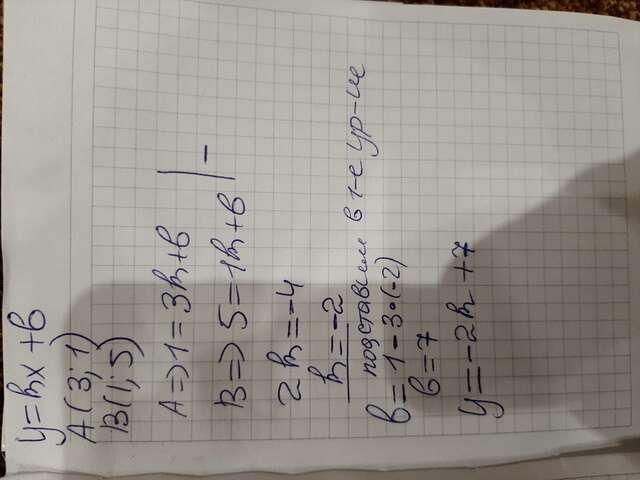 y=kx+b
A(3;1)
B(1;5)
A=>1=3k+b
B=>5=1k+b | -
2k=-4
k=-2
подставим в 1-е ур-ие
b=1-3•(-2)
b=7
y=-2k+7